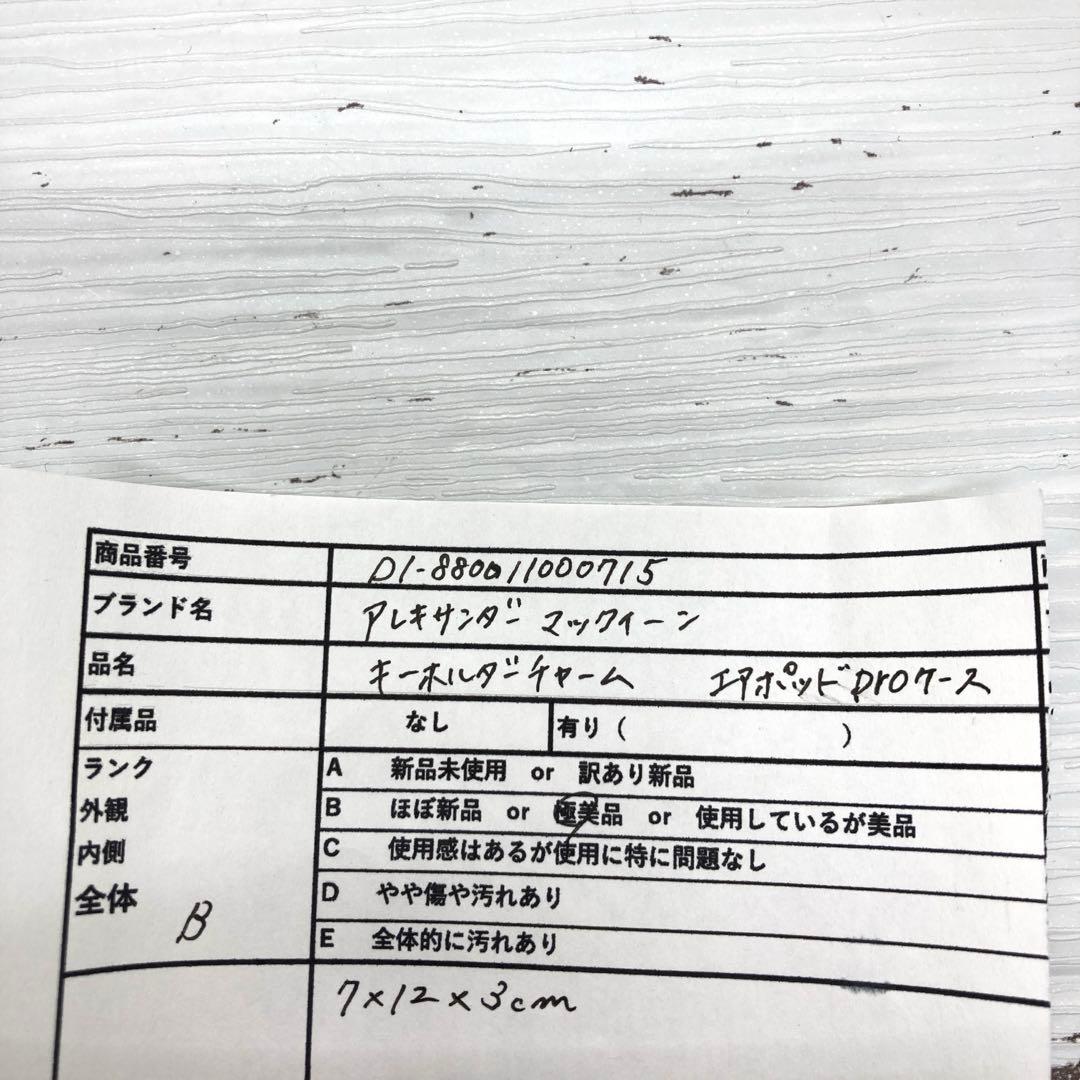 商品番号 D1-880011000715
ブランド名 アレキサンダー マックイーン
品名 キーホルダーチャーム エアポッドproケース
付属品 なし 有り ( )
ランク A 新品未使用 or 訳あり新品
外観 B ほぼ新品 or 極美品 or 使用しているが美品
内側 C 使用感はあるが使用に特に問題なし
全体 D やや傷や汚れあり
B E 全体的に汚れあり
7×12×3cm